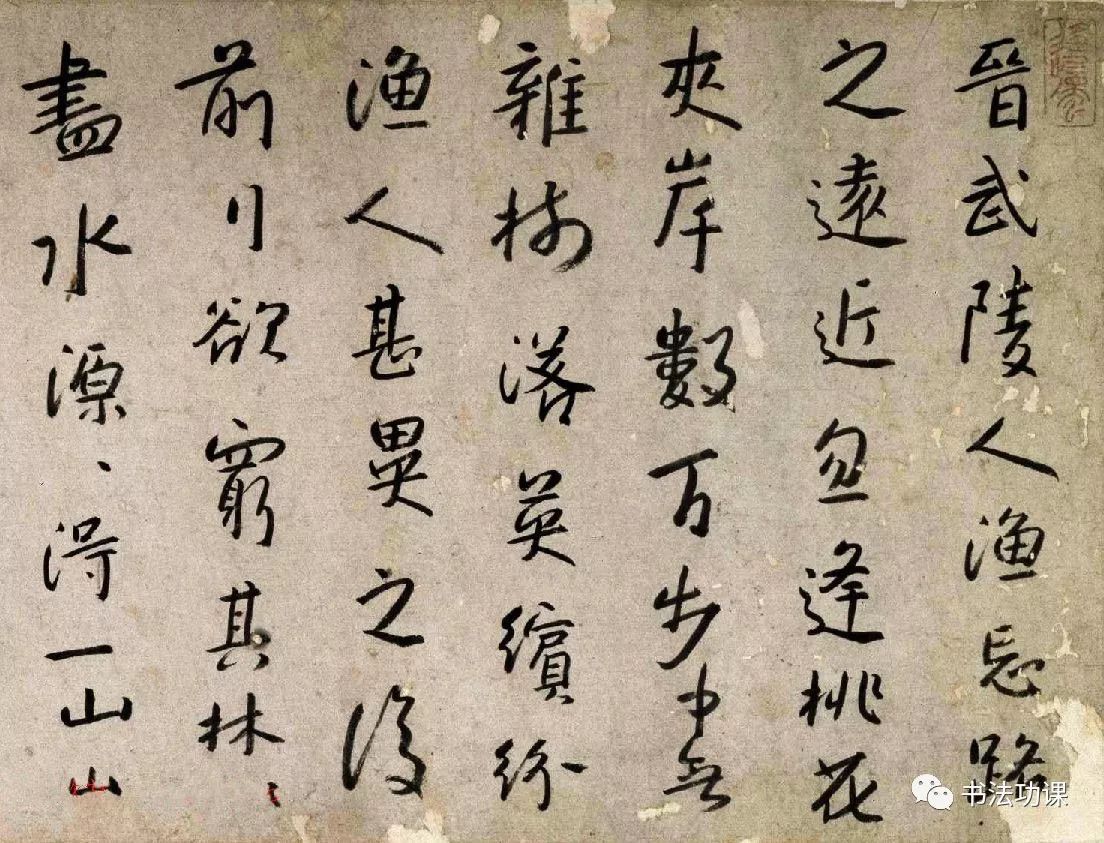 晉武陵人漁忘路
之遠近忽逢桃花
夾岸數万步中無
雜樹落英繽紛
漁人甚異之復
前行欲窮其林〻
盡水源〻得一山山
书法功课